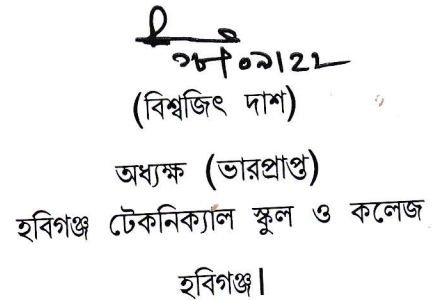 (বিশ্বজিৎ দাশ)
অধ্যক্ষ (ভারপ্রাপ্ত)
হবিগঞ্জ টেকনিক্যাল স্কুল ও কলেজ
হবিগঞ্জ।